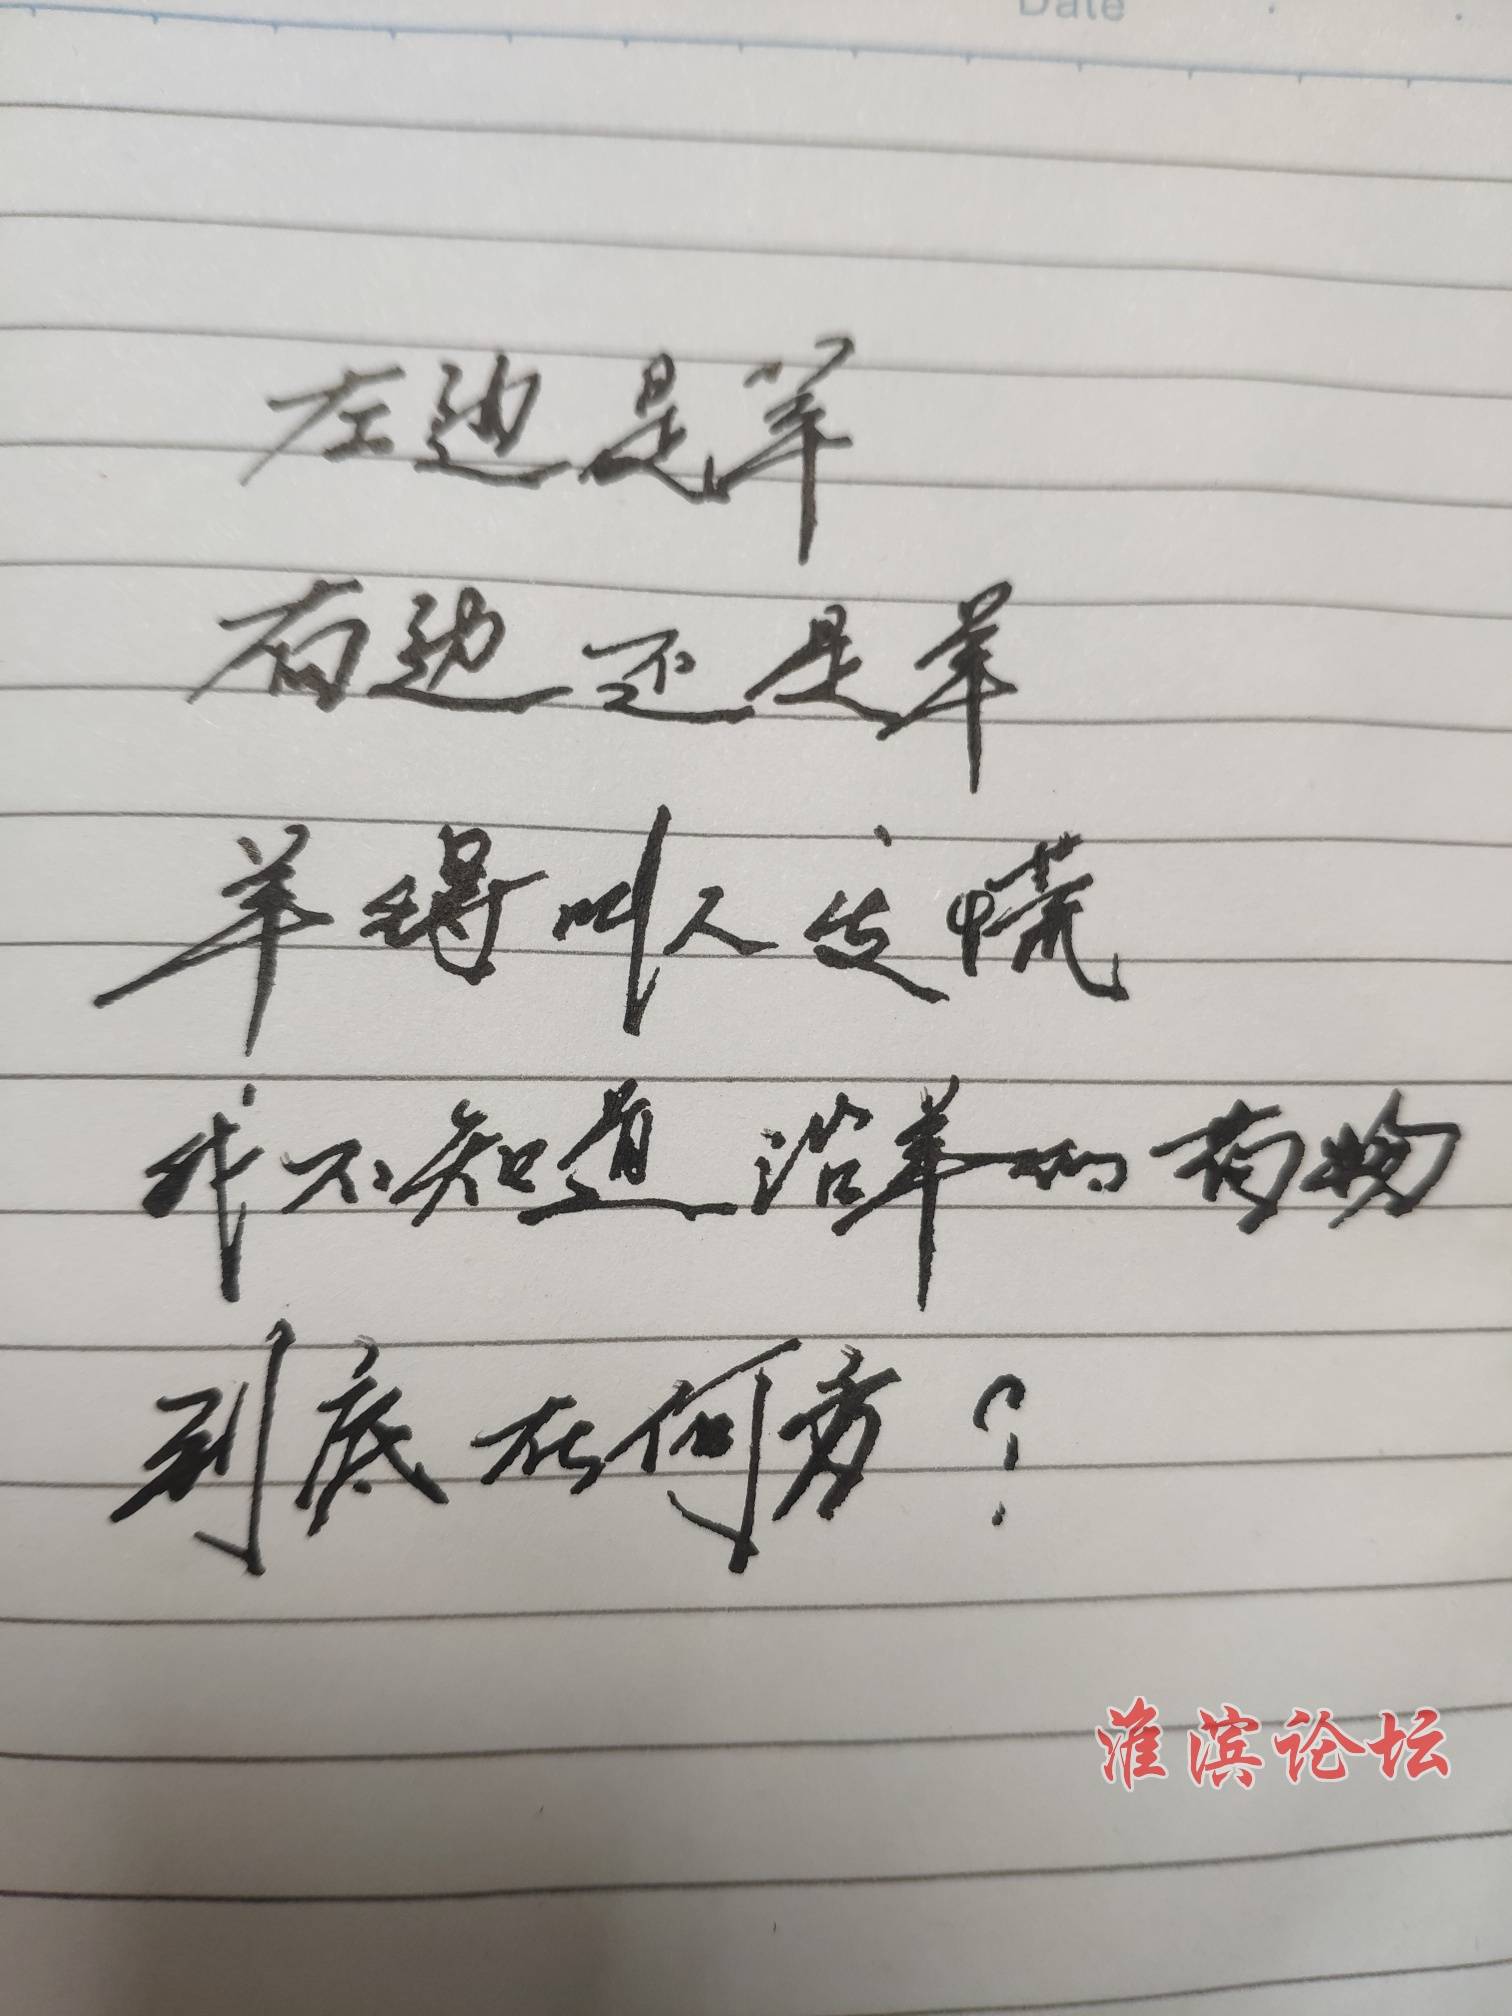 Date
左边是羊
右边还是羊
羊得叫人发慌
我不知道治羊的药物
到底在何方？
淮滨论坛